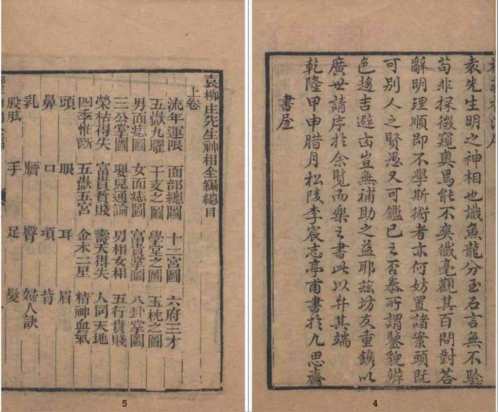 袁先生明之神相也熾魚龍分玉石言無不驗
苟非探微窺奧烏能不爽纖毫觀其百問對答
辭明理順即不學斯術者亦何妨置諸案頭既
可別人之賢愚又可鑑已之否泰所謂鑒貌辨
色趨吉避凶豈無補助之益耶茲坊友重鐫以
廣世請序於余覽而樂之書此以弁其端
乾隆甲申腊月松陵李宸志亭甫書於九思齋
書屋
4
袁柳庄先生神相全編總目
上卷
流年運限 面部總圖 十二宮圖 六府三才
五嶽九曜 干支之圖 學堂之圖 玉枕之圖
男面痣圖 女面痣圖 富貴掌圖 八卦掌圖
三公掌圖 嬰兒通論 男相女相 五行貴賤
榮枯得失 富貴貧賤 壽夭得失 人同天地
四季惟斷 五嶽五宮 金木二星 精神血氣
頭 眼 耳 眉
鼻 口 項 背
乳 臍 婦人訣
股肱 手 足 髮
5